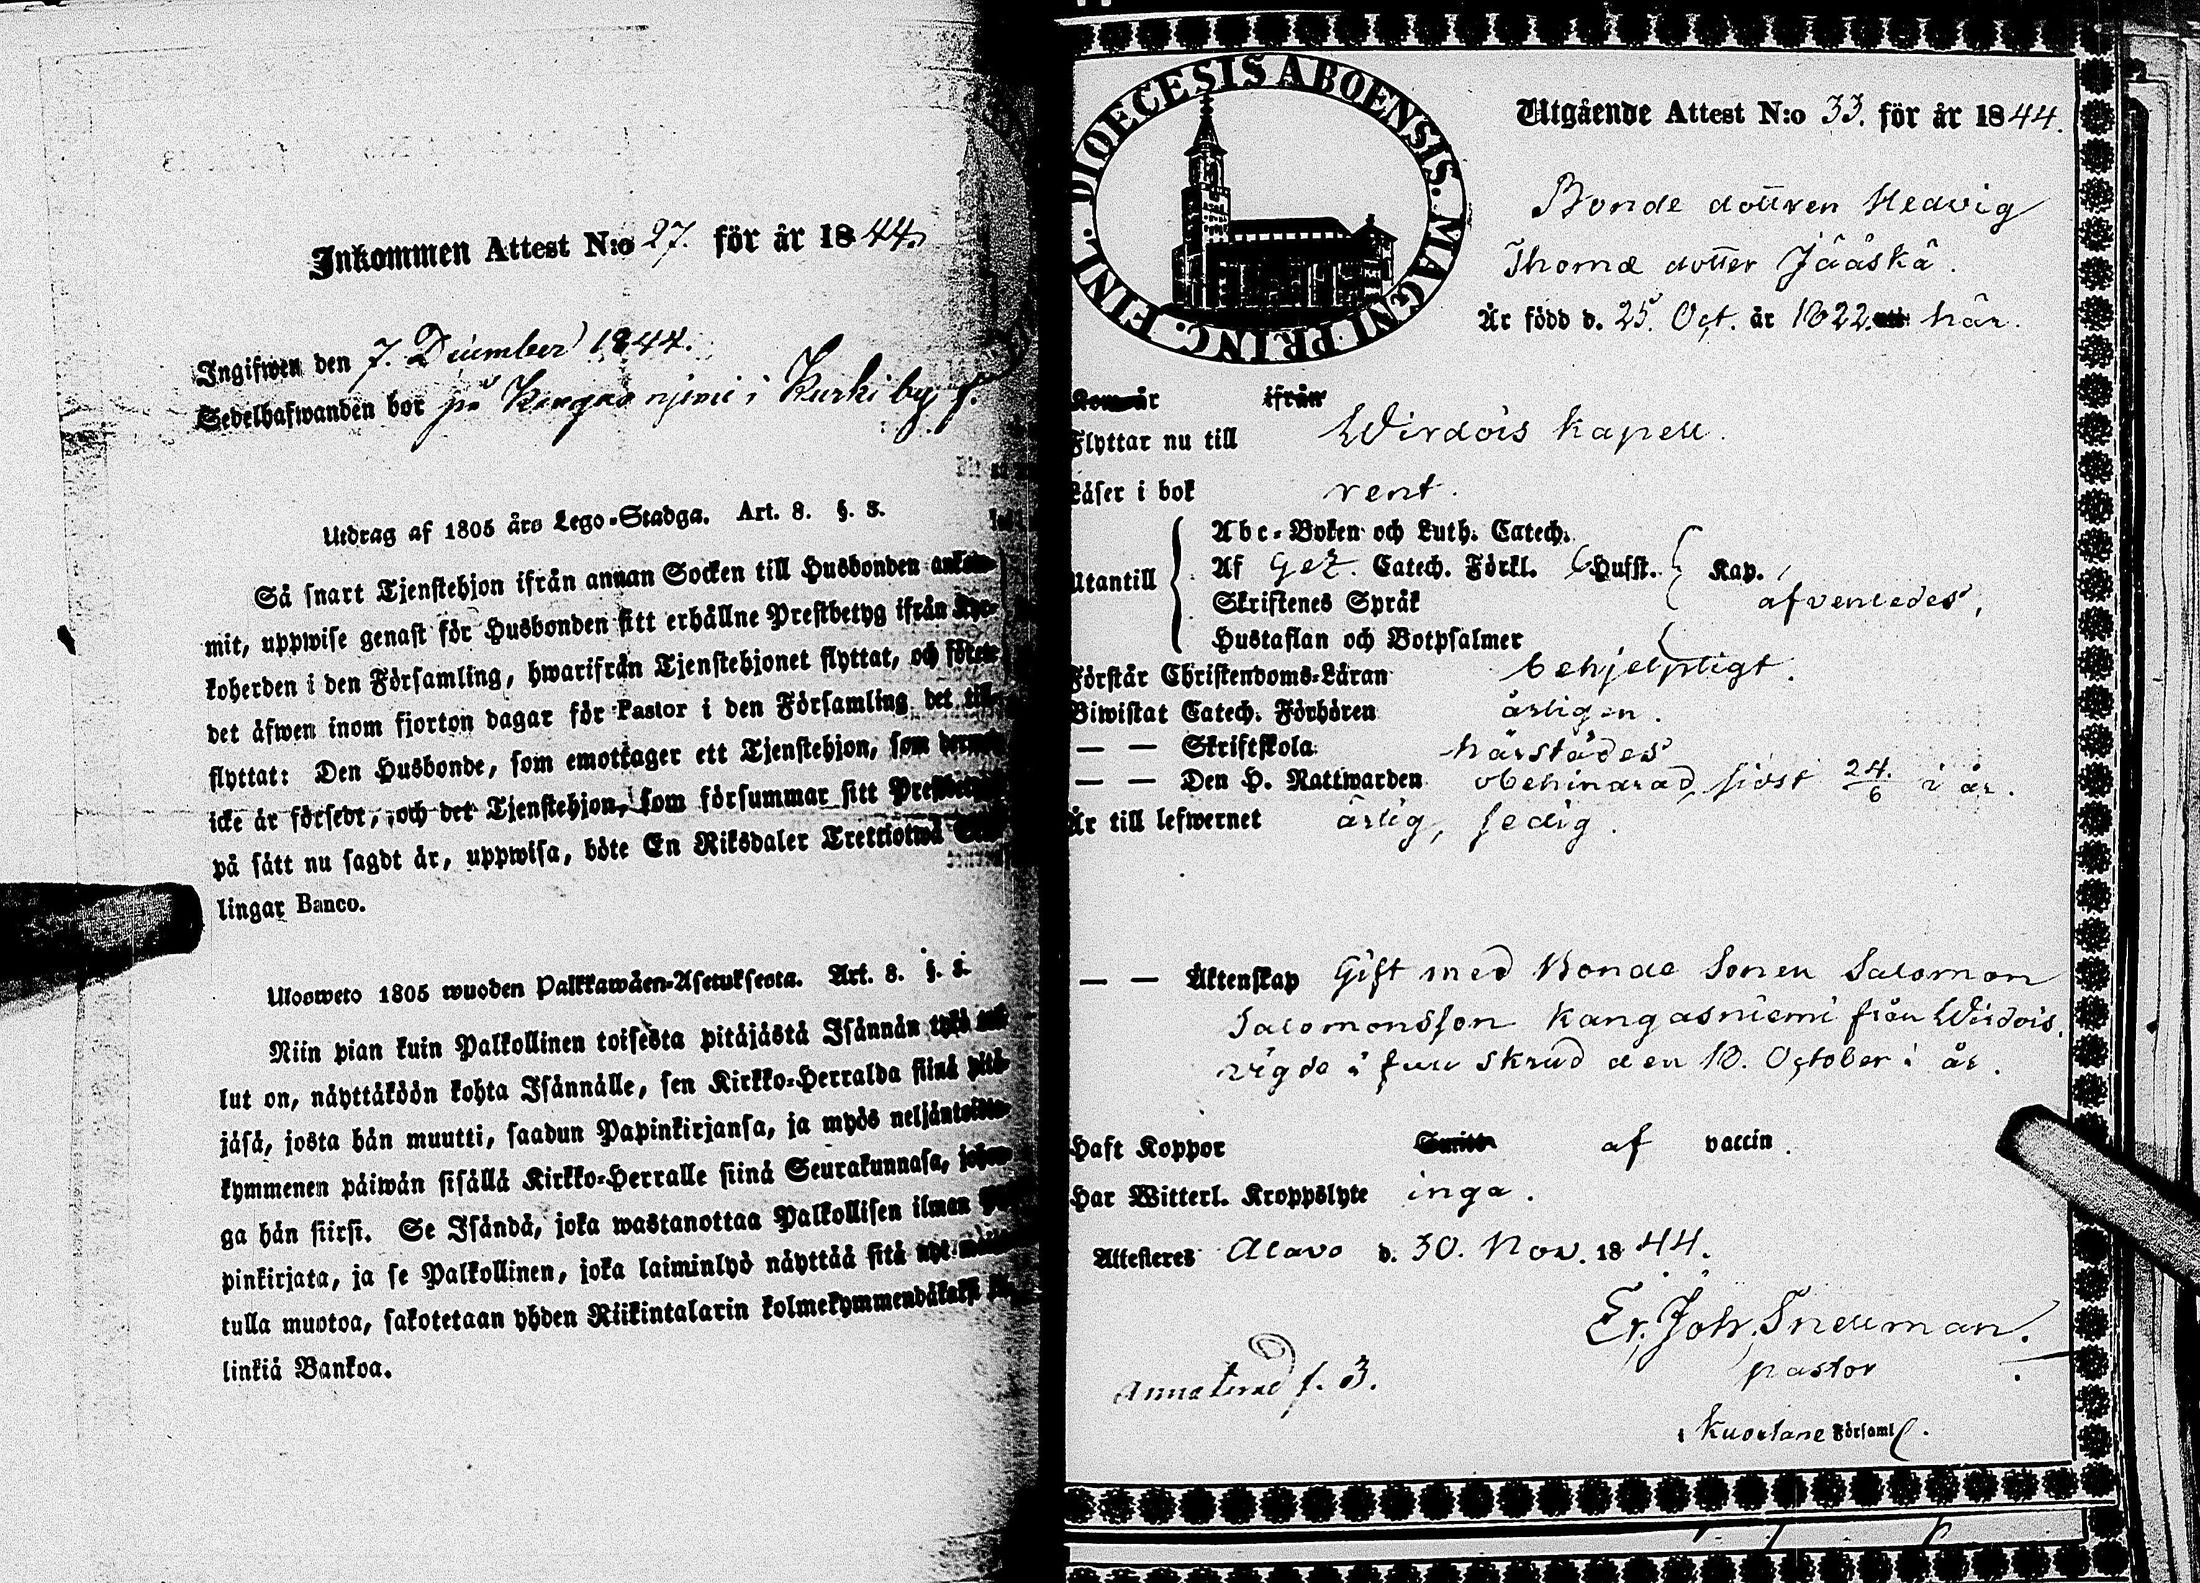 Inkommen Attest N:o 27. för år 1844.
Ingifwen den 7. December 1844.
Sedelhafwanden bor på Kangasniemi i Kurki by f.
Utdrag af 1805 års Lego-Stadga. Art. 8. §. 3.
Så snart Tjenstehjon ifrån annan Socken till Husbonden
mit, uppwise genast för Husbonden sitt erhållne Prestbetyg ifrån Kyr-
koherden i den Församling, hwarifrån Tjenstehjonet flyttat, och
det äfwen inom fjorton dagar för Pastor i den Församling det till-
flyttat: Den Husbonde, som emottager ett Tjenstehjon, som
icke är försedt, och det Tjenstehjon, som försummar sitt
på sätt nu sagdt är, uppwisa, böte En Riksdaler Trettiotwå
lingar Banco.
Ulosweto 1805 wuoden Palkkawäen-Asetuksesta. Art. 8. §. 3.
Niin pian kuin Palkollinen toisesta pitäjästä Isännän
lut on, näyttäköön kohta Isännälle, sen Kirkko-Herralda siinä pitä-
jäsä, josta hän muutti, saadun Papinkirjansa, ja myös
kymmenen päiwän sisällä Kirkko-Herralle siinä Seurakunnasa,
ga hän siirsi. Se Isändä, joka wastanottaa Palkollisen ilman
pinkirjata, ja se Palkollinen, joka laiminlyö näyttää sitä
tulla muotoa, sakotetaan yhden Riikintalarin kolmekymmendäkaksi
linkiä Bankoa.
FINL. DIOECESIS ABOENSIS. MAGNI PRINC.
Utgående Attest N:o 33. för år 1844.
Bonde dottren Hedvig
Thomæ dotter Jääskä.
Är född d. 25. Oct. år 1822. uti här.
Kom år ifrån
Flyttar nu till Wirdois kapell.
Läser i bok rent.
Utantill
Abc-Boken och Luth. Catech.
Af Gez. Catech. Förkl. Hufst. Kap.
Skriftenes Språk afvenledes,
Hustaflan och Botpsalmer
Förstår Christendoms-Läran behjelpligt.
Biwistat Catech. Förhören årligen.
— — Skriftskola härstädes
— — Den H. Nattwarden obehindrad, sidst 24/6 i år.
Är till lefwernet ärlig, sedig.
— — Äktenskap Gift med Bonde Sonen Salomon
Salomonsson Kangasniemi från Wirdois.
vigde i full skrud den 10. October i år.
Haft Koppor af vaccin.
Har Witterl. Kroppslyte inga.
Attesteres Alavo d. 30. Nov. 1844.
Er. Joh. Snellman.
pastor
i Kuortane Församl.
Annoterad f. 3.